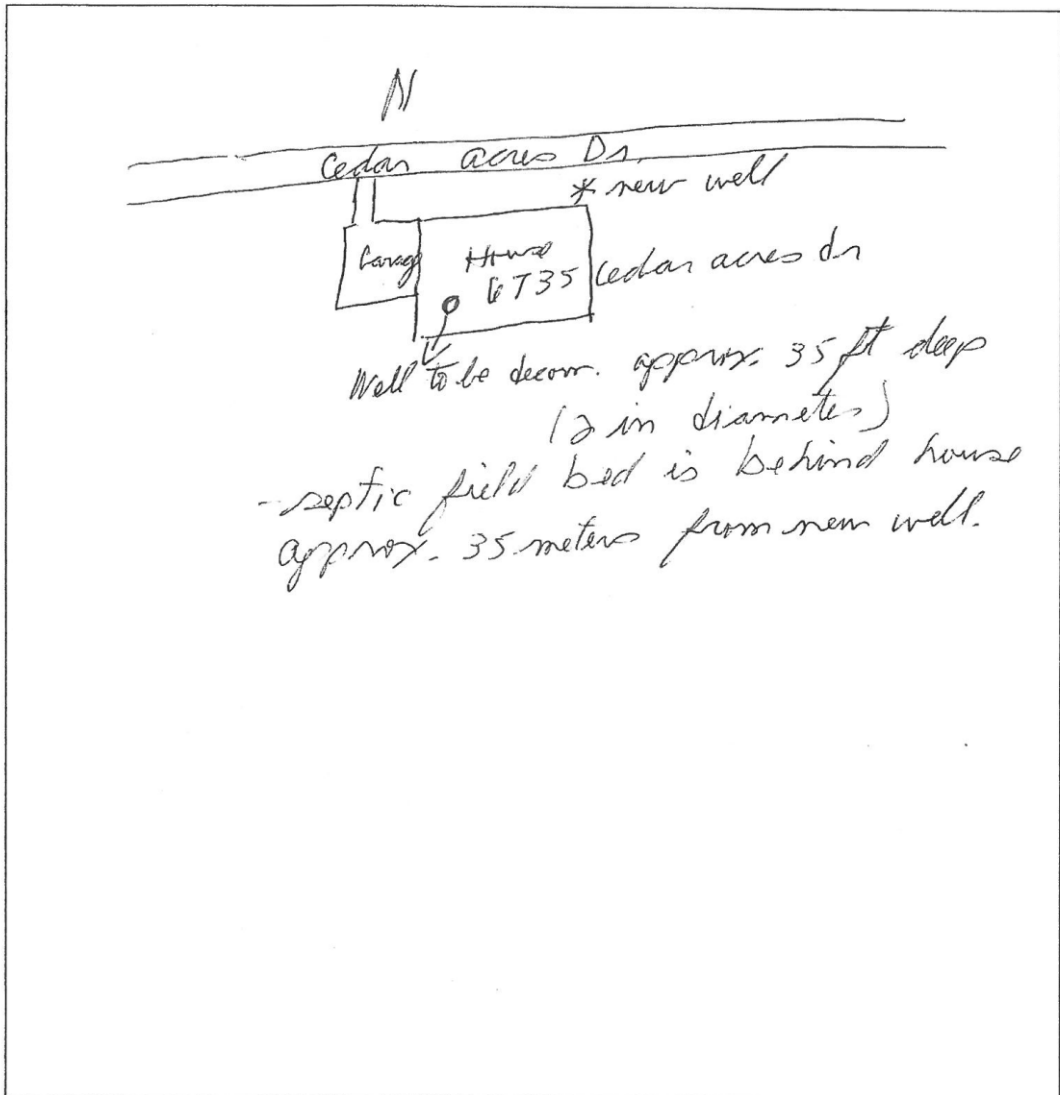 N
Cedar acres Dr.
* new well
Garag
House
6735
Cedar acres dr
Well to be decom. approx. 35 ft deep
(2 in diameter)
- septic field bed is behind house
approx. 35 meters from new well.